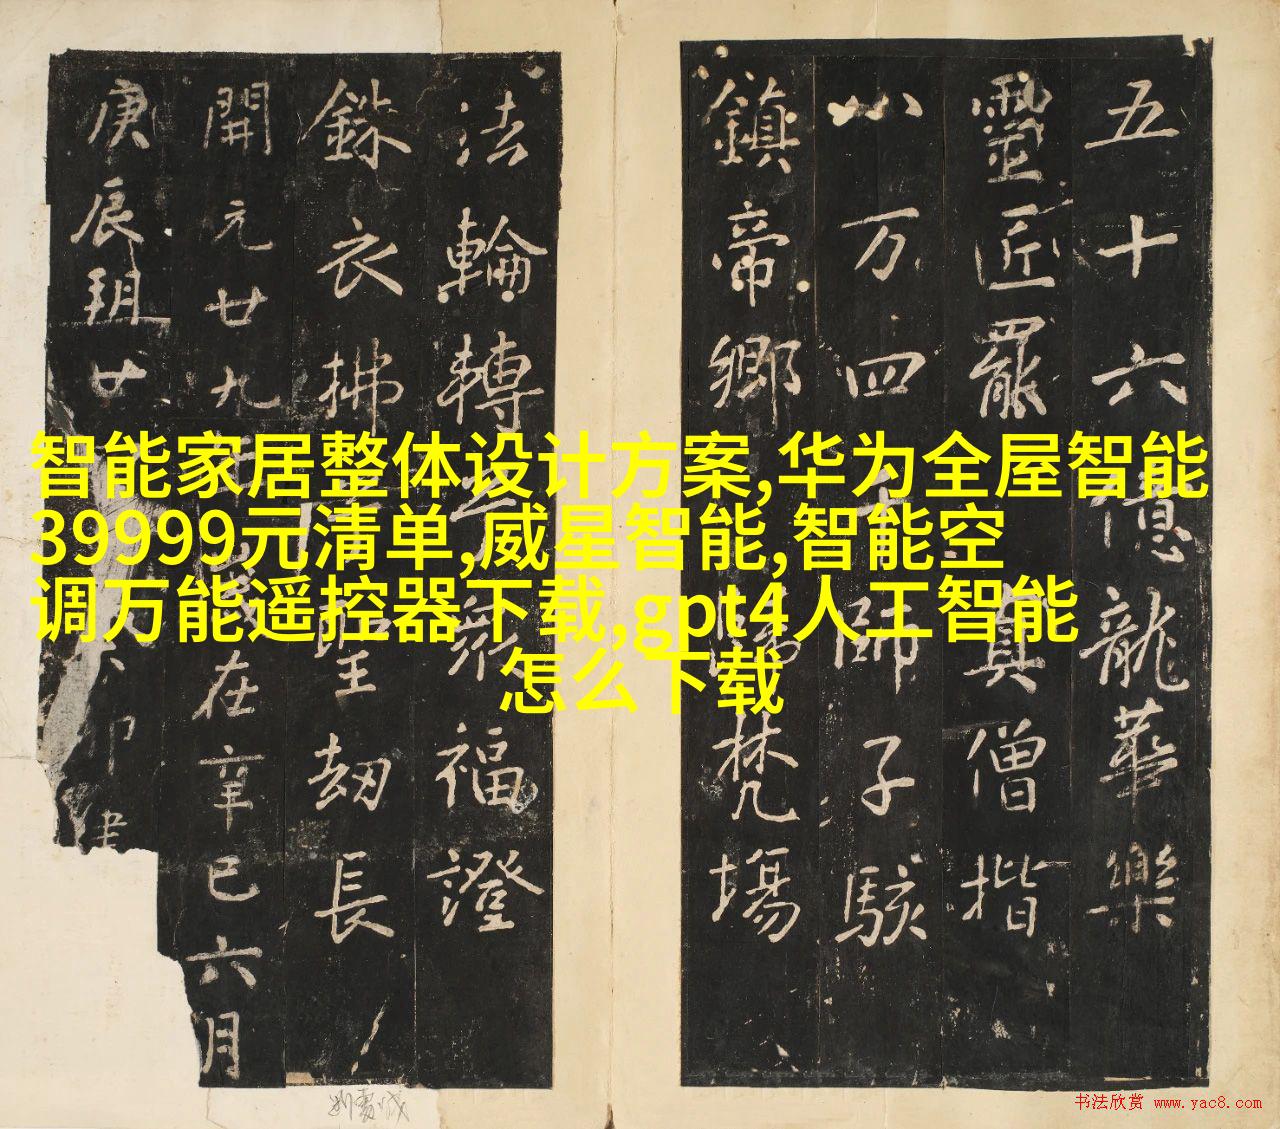 五十六億龍華樂
靈匠罷真僧揩
八万四千師子駭
鎮帝鄉梵場
法輪轉福證
銖衣拂劫長
開元廿九在辛巳六月
庚辰廿
智能家居整体设计方案,华为全屋智能
39999元清单,威星智能,智能空
调万能遥控器下载,gpt4人工智能
怎么下载
书法欣赏 www.yac8.com